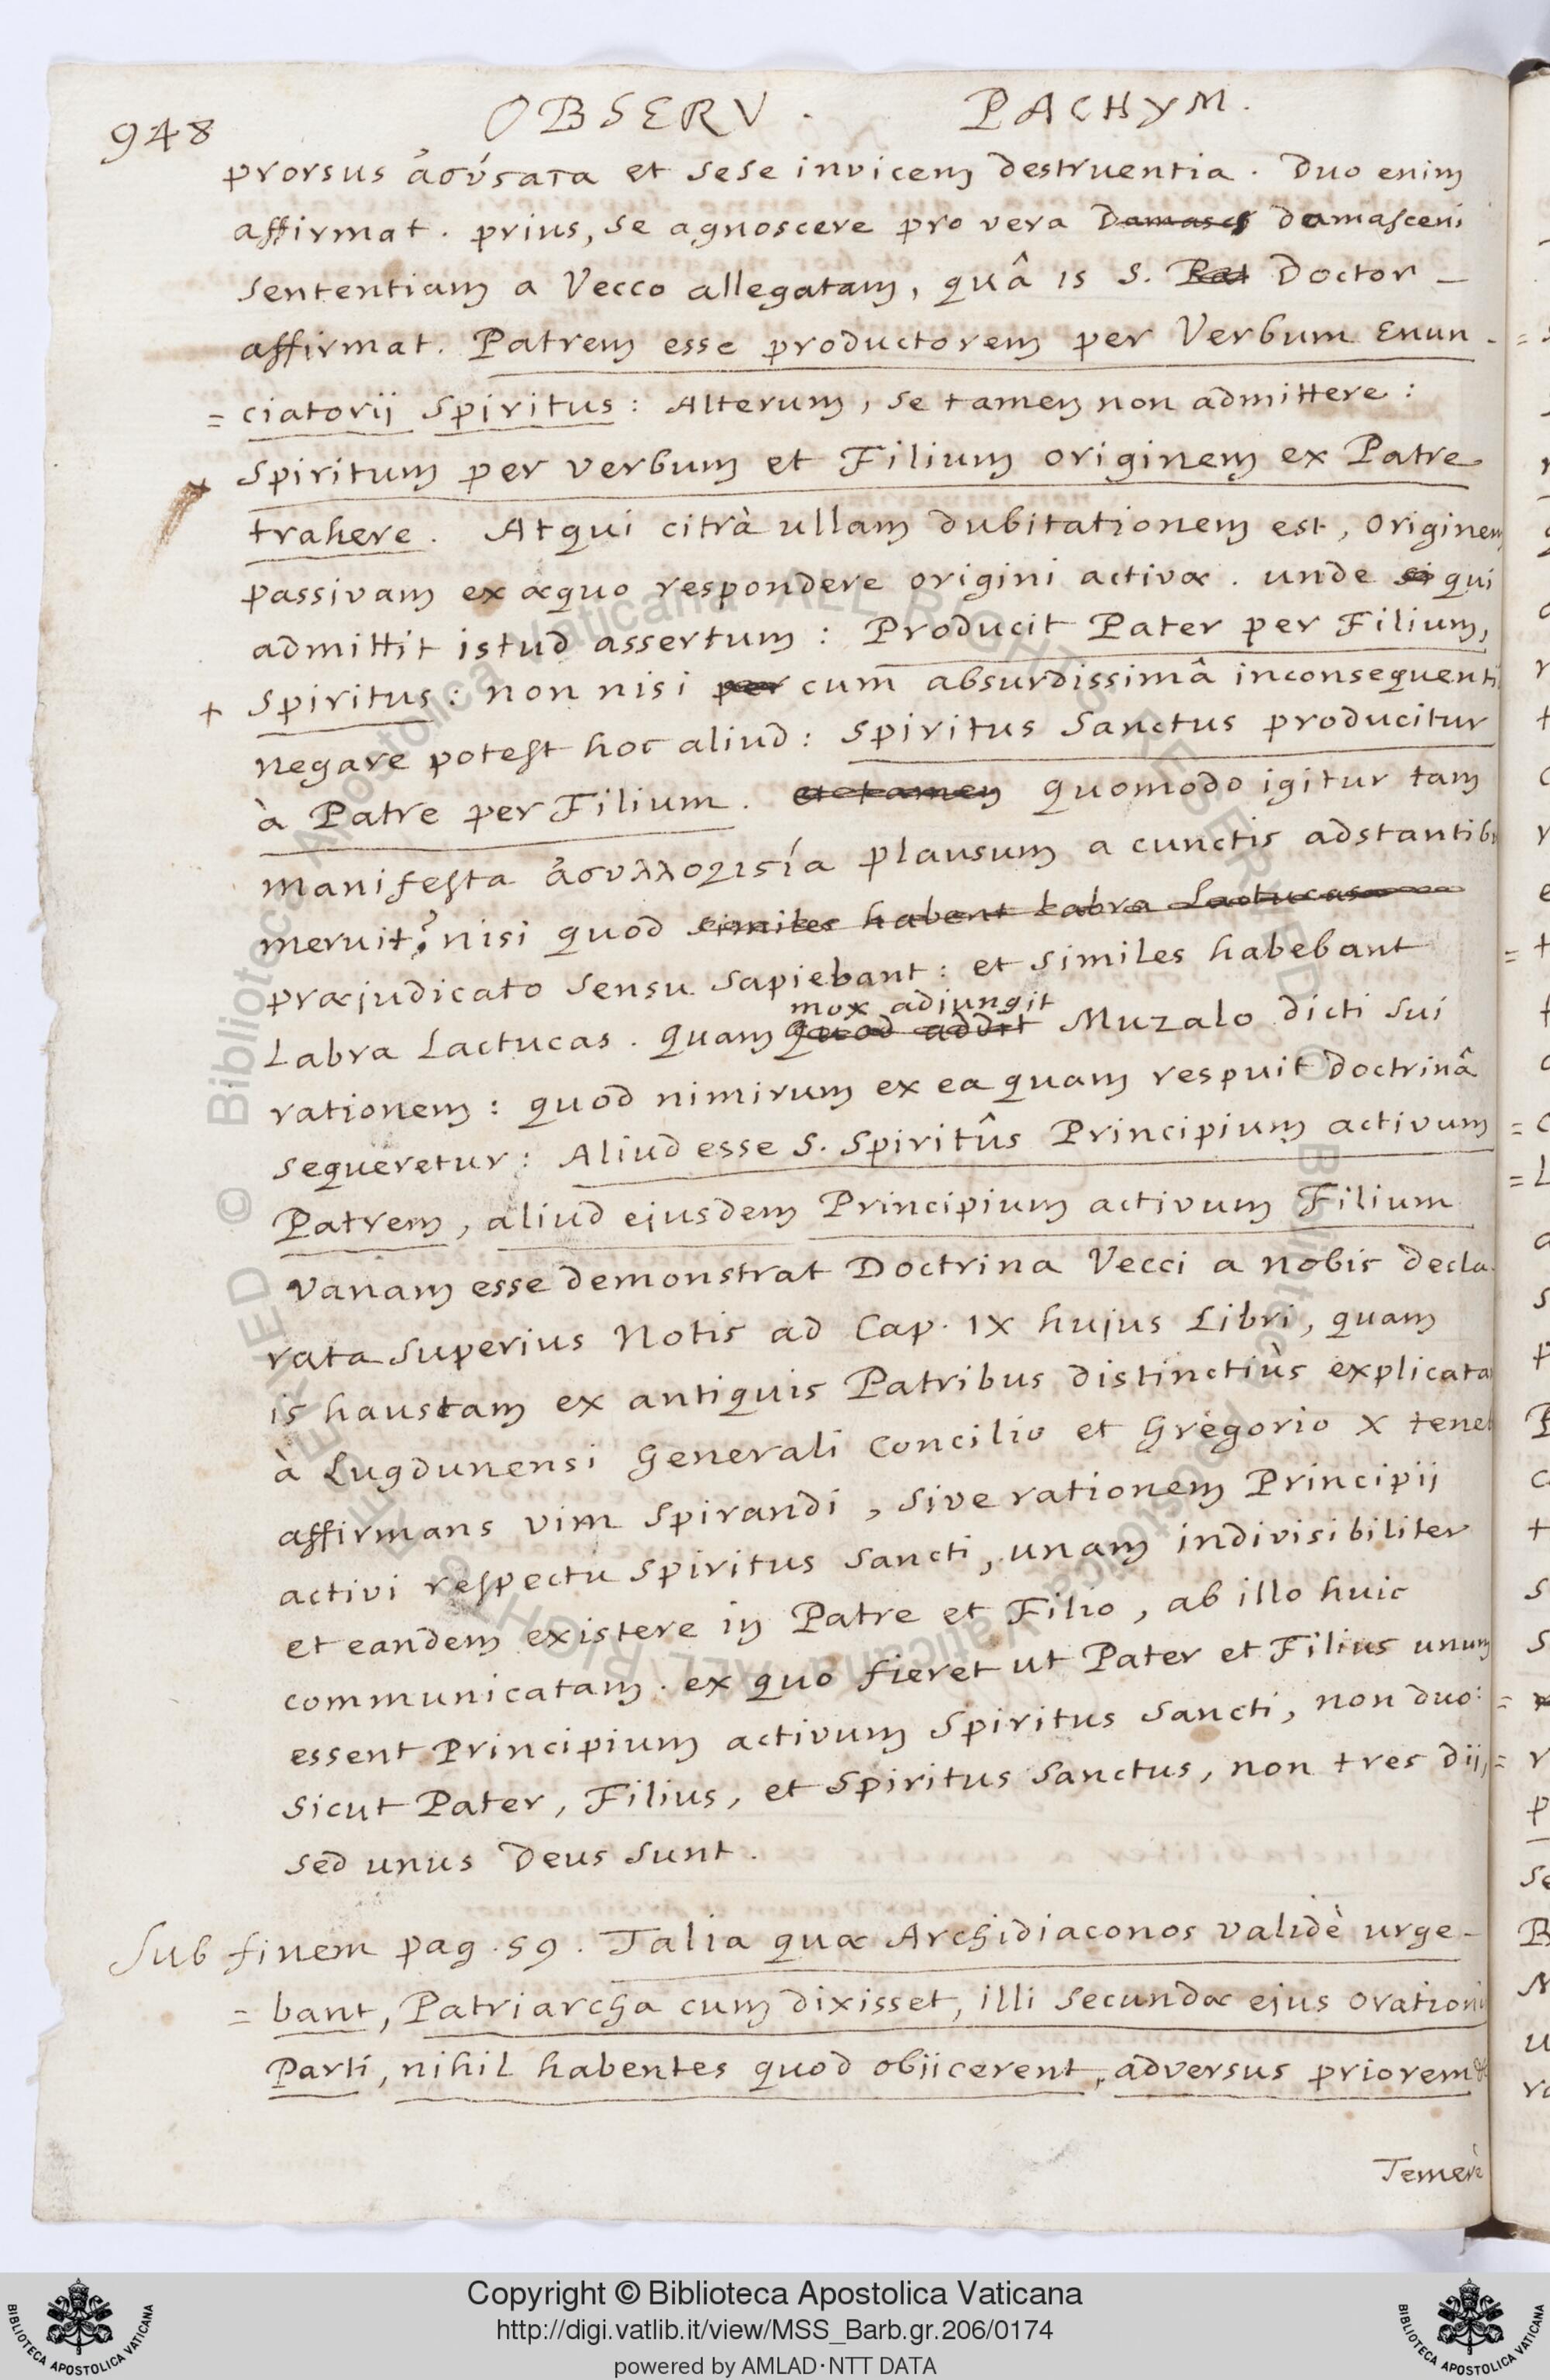 948 OBSERV. PACHYM.
prorsus ἀσύστατα et sese invicem destruentia. Duo enim
affirmat. prius, se agnoscere pro vera Damasc damasceni
sententiam a Vecco allegatam, quâ is S. Pat Doctor -
affirmat. Patrem esse productorem per Verbum Enun-
= ciatorii Spiritus: Alterum, se tamen non admittere:
+ Spiritum per verbum et Filium originem ex Patre
trahere. Atqui citrà ullam dubitationem est, Originem
passivam ex æquo respondere origini activæ. unde si qui
admittit istud assertum: Producit Pater per Filium,
+ Spiritus: non nisi per cum absurdissimâ inconsequenti
negare potest hoc aliud: Spiritus Sanctus producitur
à Patre per Filium. et tamen Quomodo igitur tam
manifesta ἀσυλλογιστία plausum a cunctis adstantibu
meruit? nisi quod similes habent Labra Lactucas
præjudicato sensu sapiebant: et similes habebant
mox adjungit
Labra Lactucas. Quam quod addit Muzalo dicti sui
rationem: quod nimirum ex ea quam respuit doctrinâ
sequeretur: Aliud esse S. Spiritûs Principium activum
Patrem, aliud ejusdem Principium activum Filium
vanam esse demonstrat Doctrina Vecci a nobis decla-
rata superius Notis ad Cap. IX hujus Libri, quam
is haustam ex antiquis Patribus distinctiùs explicata
à Lugdunensi Generali Concilio et Gregorio X tene
affirmans vim spirandi, sive rationem Principij
activi respectu Spiritus Sancti, unam indivisibiliter
et eandem existere in Patre et Filio, ab illo huic
communicatam. ex quo fieret ut Pater et Filius unum
essent Principium activum Spiritus Sancti, non duo:
Sicut Pater, Filius, et Spiritus Sanctus, non tres dii,
sed unus Deus sunt.
Sub finem pag. 59. Talia quæ Archidiaconos validè urge-
= bant, Patriarcha cum dixisset, illi secundæ ejus orationi
Parti, nihil habentes quod obiicerent, adversus priorem
Temerè
Copyright © Biblioteca Apostolica Vaticana
http://digi.vatlib.it/view/MSS_Barb.gr.206/0174
powered by AMLAD·NTT DATA
BIBLIOTECA APOSTOLICA VATICANA
BIBLIOTECA APOSTOLICA VATICANA